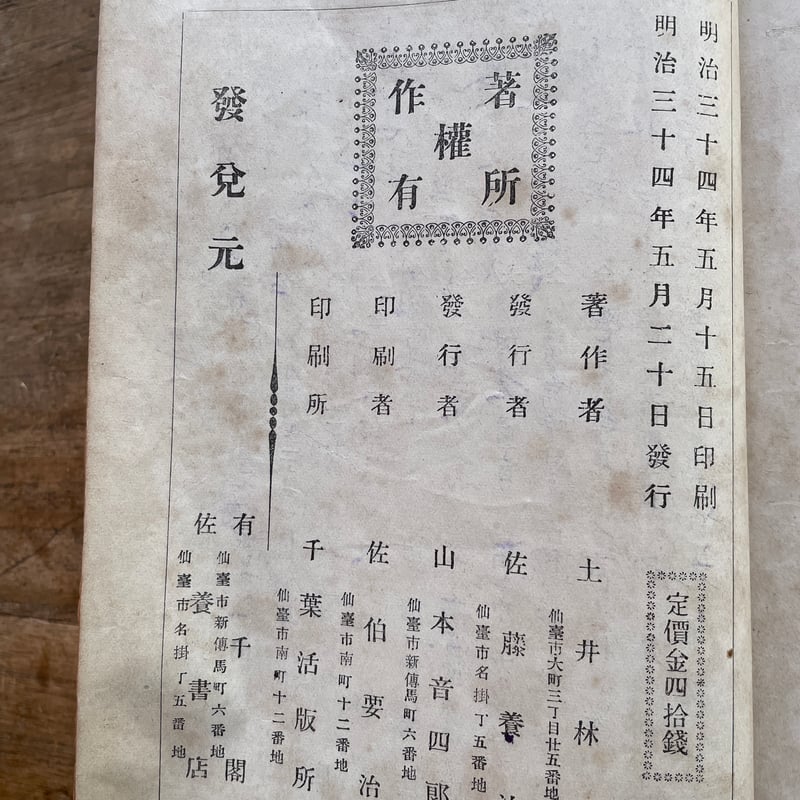 明治三十四年五月十五日印刷
明治三十四年五月二十日發行
定價金四拾錢
著作權所有
著作者
仙臺市大町三丁目廿五番地
土井林
發行者
仙臺市名掛丁五番地
佐藤養
發行者
仙臺市新傳馬町六番地
山本音四郎
印刷者
仙臺市南町十二番地
佐伯要治
印刷所
仙臺市南町十二番地
千葉活版所
發兌元
仙臺市新傳馬町六番地
有千閣
仙臺市名掛丁五番地
佐養書店